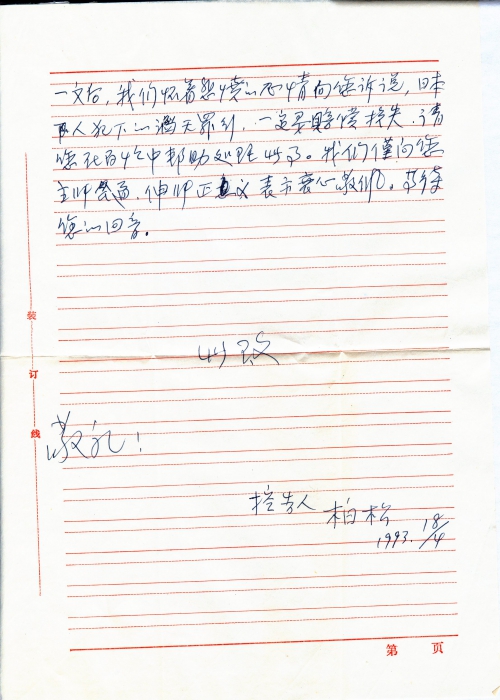 一文后，我们怀着愤慨心情向您诉说，日本
人犯下的滔天罪行，一定要赔偿损失，请
您在百忙中帮助处理此事。我们仅向您
主师，伸正义表示衷心敬佩。等待
您的回音。
此致
敬礼！
控告人 柏松
1993. 18/4
装
订
线
第 页